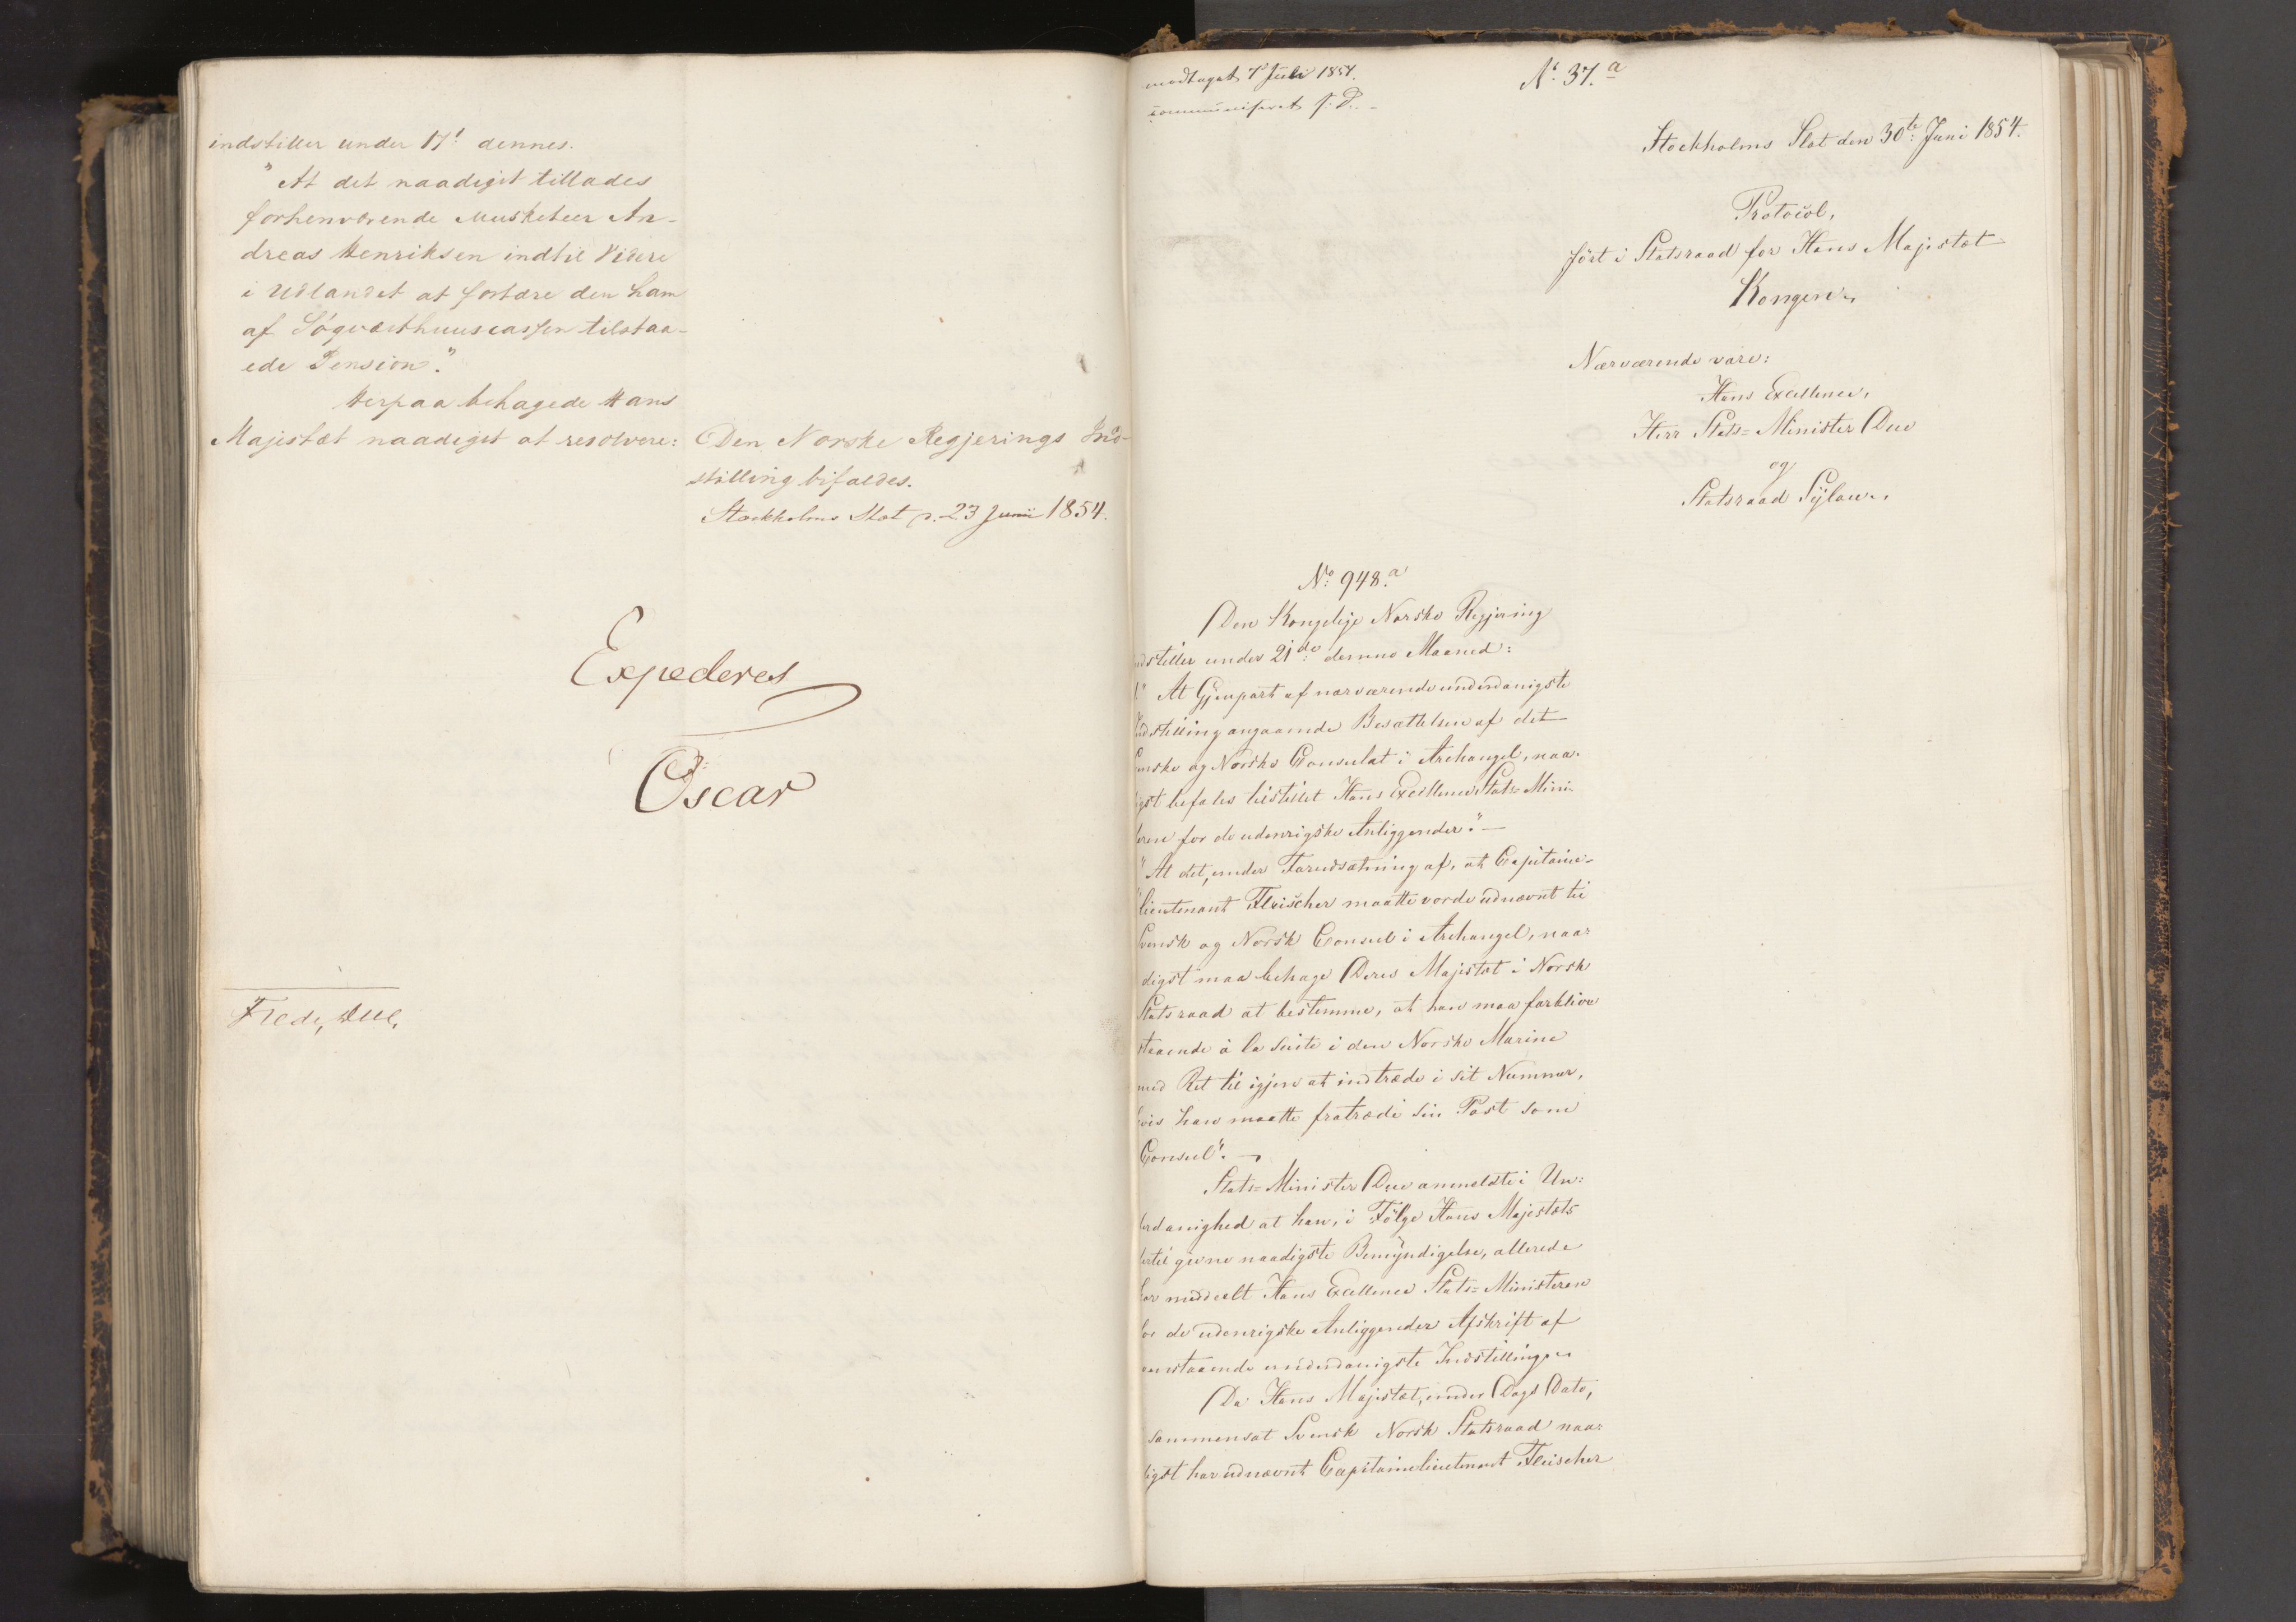 indstiller under 17' dennes.
"At det naadigst tillades
forhenværende Musketeer An-
dreas Henriksen indtil Videre
i Udlandet at fortære den ham
af Søqvæsthuuscassen tilstaa-
ede Pension."
Herpaa behagede Hans
Majestæt naadigst at resolvere:
Den Norske Regjerings Ind-
stilling bifaldes.
Stockholms Slot d. 23 Junii 1854.
Expederes
Oscar
Fredr, Due,
modtaget 7' Juli 1854.
communiseret s. D.
No. 37.a
Stockholms Slot den 30te Juni 1854.
Protocol,
ført i Statsraad for Hans Majestæt
Kongen.
Nærværende vare:
Hans Excellence,
Herr Stats=Minister Due
og
Statsraad Sylow.
No. 948.a
Den Kongelige Norske Regjering
indstiller under 21de denne Maaned:
" At Gjenpart af nærværende underdanigste
Indstilling angaaende Besættelsen af det
Svenske og Norske Consulat i Archangel, naa-
digst befales tilstillet Hans Excellence Stats=Mini-
steren for de udenrigske Anliggender." —
"At det, under Forudsætning af, at Capitaine-
lieutenant Fleischer maatte vorde udnævnt til
Svensk og Norsk Consul i Archangel, naa=
digst maa behage Deres Majestæt i Norsk
Statsraad at bestemme, at han maa forblive
staaende à la Suite i den Norske Marine
med Ret til igjen at indtræde i sit Nummer,
hvis han maatte fratræde sin Post som
Consul". —
Stats=Minister Due anmeldte i Un=
derdanighed at han, i Følge Hans Majestæts
dertil givne naadigste Bemyndigelse, allerede
har meddeelt Hans Excellence Stats=Ministeren
for de udenrigske Anliggender Afskrift af
ovenstaaende underdanigste Indstilling.
Da Hans Majestæt, under Dags Dato,
i sammensat Svensk Norsk Statsraad naa=
digst har udnævnt Capitainelieutenant Fleischer